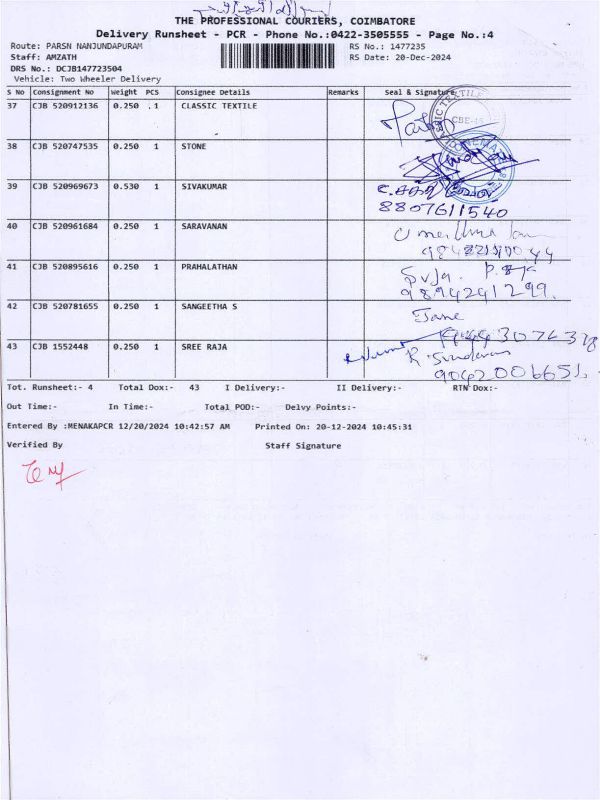 THE PROFESSIONAL COURIERS, COIMBATORE
Delivery Runsheet - PCR - Phone No.:0422-3505555 - Page No.:4
Route: PARSN NANJUNDAPURAM RS No.: 1477235
Staff: AMZATH RS Date: 20-Dec-2024
DRS No.: DCJB147723504
Vehicle: Two Wheeler Delivery
S No Consignment No Weight PCS Consignee Details Remarks Seal & Signature
37 CJB 520912136 0.250 1 CLASSIC TEXTILE
CBE-45
38 CJB 520747535 0.250 1 STONE
39 CJB 520969673 0.530 1 SIVAKUMAR
8807611540
40 CJB 520961684 0.250 1 SARAVANAN
41 CJB 520895616 0.250 1 PRAHALATHAN
9894241299.
42 CJB 520781655 0.250 1 SANGEETHA S
43 CJB 1552448 0.250 1 SREE RAJA
R. Sundaram
9042006651.
Tot. Runsheet:- 4 Total Dox:- 43 I Delivery:- II Delivery:- RTN Dox:-
Out Time:- In Time:- Total POD:- Delvy Points:-
Entered By :MENAKAPCR 12/20/2024 10:42:57 AM Printed On: 20-12-2024 10:45:31
Verified By Staff Signature